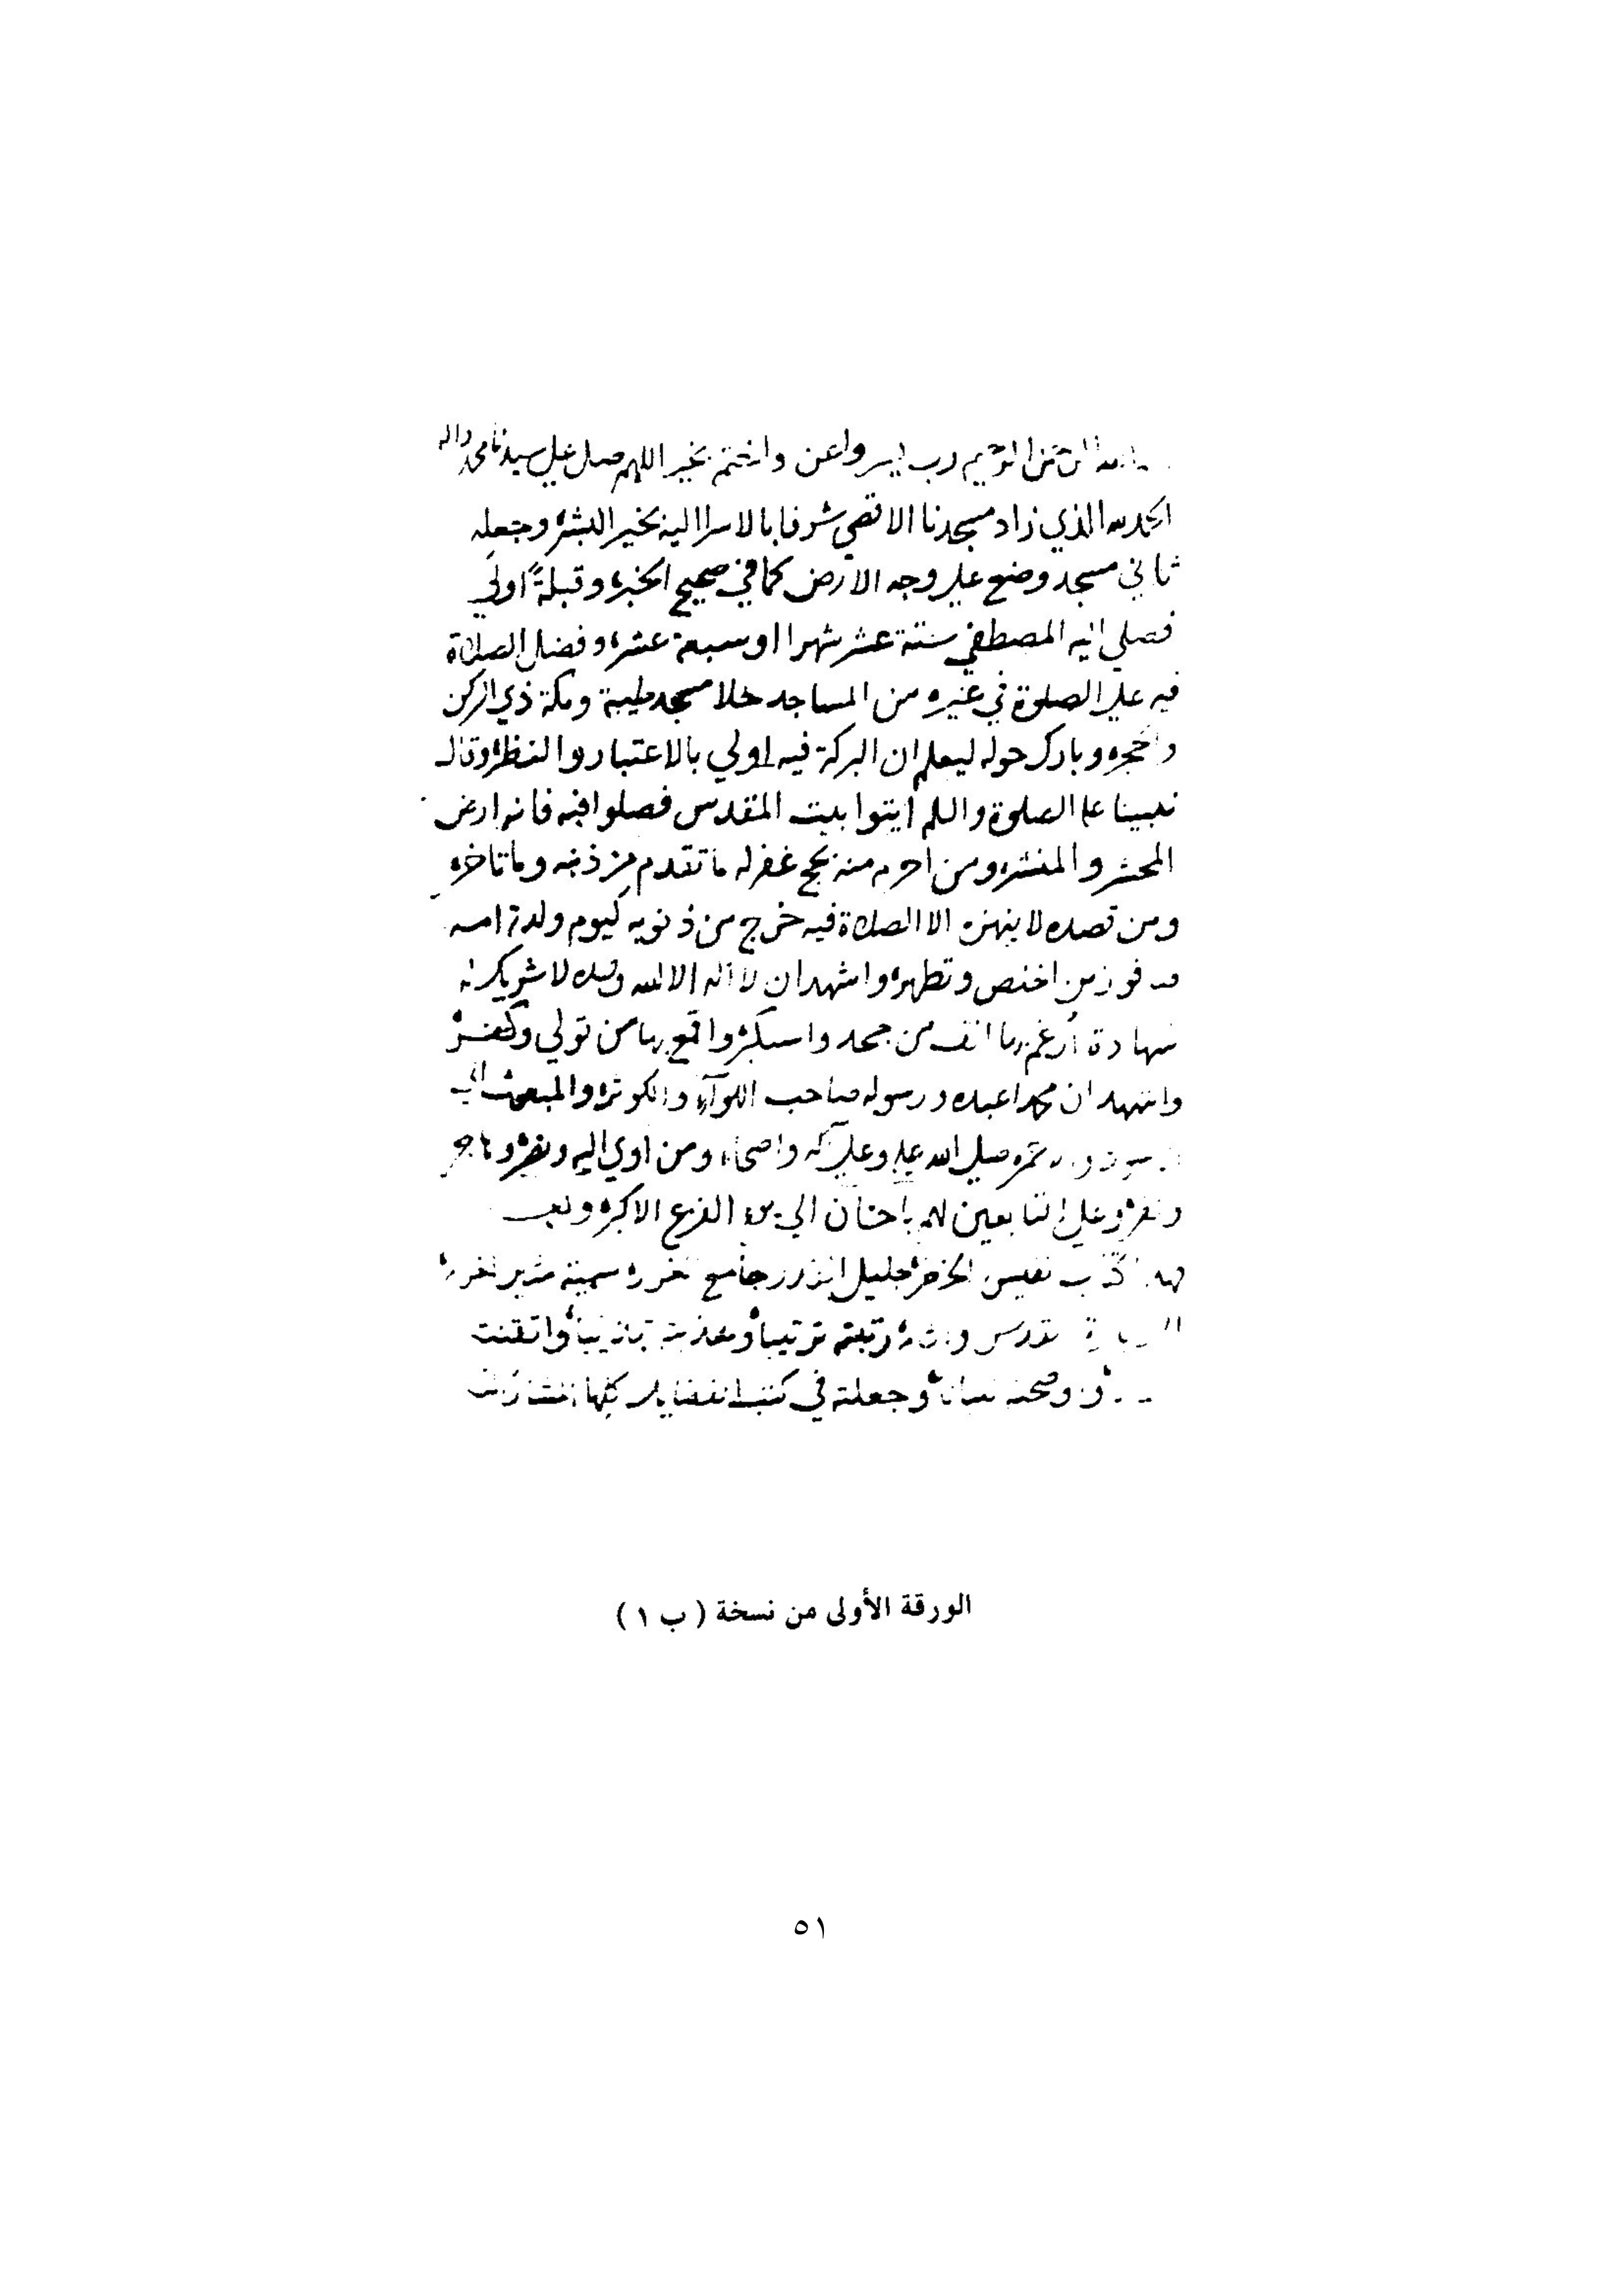 الرحيم رب يسر واعن واختم بخير اللهم صل علي سيدنا محمد واله
الحمد لله الذي زاد مسجدنا الاقصي شرفا بالاسرا اليه بخير البشر وجعله
ثاني مسجد وضع علي وجه الارض كما في صحيح الخبر وقبلةً اولي
فصلي اليه المصطفي ستة عشر شهرا او سبعة عشر وفضل الصلاة
فيه علي الصلوة في غيره من المساجد خلا مسجد طيبة ومكة ذي الركن
والحجر وبارك حوله ليعلم ان البركة فيه اولي بالاعتبار والنظر وقال
نبينا عليه الصلوة والسلام ايتوا بيت المقدس فصلوا فيه فانه ارض
المحشر والمنشر ومن احرم منه بحج غفر له ما تقدم من ذنبه وما تاخر
ومن قصده لا ينهزه الا الصلاة فيه خرج من ذنوبه كيوم ولدته امه
فوز من اختص وتطهر واشهد ان لا اله الا الله وحده لا شريك له
شهادة أرغم بها انف من جحد واستكبر واقمع بها من تولي وكفر
واشهد ان محمدا عبده ورسوله صاحب اللوآء والكوثر والمبعوث الي
صلي الله عليه وعلي آله واصحابه ومن اوي اليه ونصر وهاجر
ونفر وعلي التابعين لهم باحسان الي يوم الفزع الاكبر وبعد
فهذا كتاب نفيس الخطر جليل القدر جامع
رتبته ترتيبا وهذبته تهذيبا واتقنته
وجعلته في كتب الفضايل كلها
الورقة الأولى من نسخة ( ب ١ )
٥١